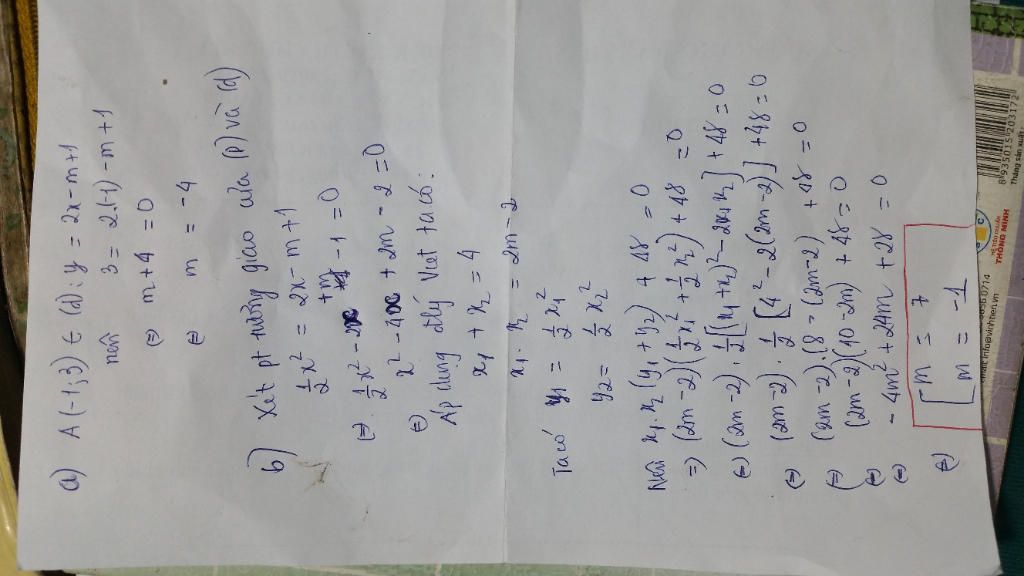 a) A(-1;3) ∈ (d): y = 2x-m+1
nên 3 = 2.(-1)-m+1
(=) m+4 = 0
(=) m = -4
b) Xét pt tương giao của (P) và (d)
1/2x² = 2x-m+1
(=) 1/2x² - 2x +m -1 = 0
(=) x² - 4x + 2m - 2 = 0
Áp dụng đlý Viet ta có:
x₁ + x₂ = 4
x₁.x₂ = 2m-2
Ta có y₁ = 1/2 x₁²
y₂ = 1/2 x₂²
Nên x₁x₂(y₁+y₂) + 48 = 0
=) (2m-2)(1/2x₁²+1/2x₂²) + 48 = 0
(=) (2m-2).1/2[(x₁+x₂)²-2x₁x₂]+48=0
(=) (2m-2).1/2[4²-2(2m-2)]+48=0
(=) (2m-2).(8-(2m-2)) +48=0
(=) (2m-2)(10-2m) +48=0
(=) -4m²+24m+28 = 0
(=) [m = 7
[m = -1
8935015203172
THÔNG MINH